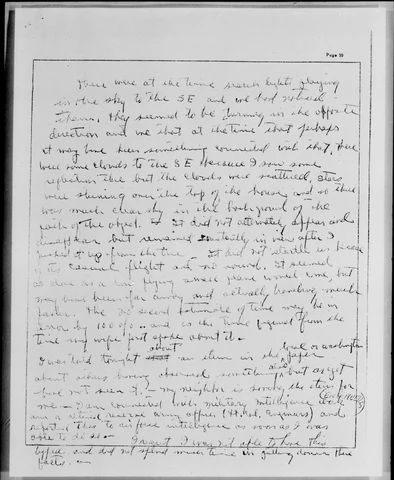 Page 30
There were at the time search lights playing
in the sky to the SE and we had noticed
them. They seemed to be turning in the opposite
direction and we that at the time that perhaps
it may have been something connected with that. There
were some clouds to the SE because I saw some
reflection there but the clouds were scattered, stars
were shining over the top of the house and so there
was much clear sky in the background of the
path of the object. It did not alternately appear and
disappear but remained steadily in view after I
picked it up from the time. It did not startle us because
of its casual flight and no sound. It seemed
as close as a low flying small plane would come, but
may have been far away and actually traveling much
faster. The 20 second estimate of time may be in
error by 100% and is the time figured from the
time my wife first spoke about it.
I was told tonight about an item in the local or Washington paper
about others having observed something also but as yet
have not seen it. My neighbor is saving the item for
me. I am connected with military intelligence
and a retired reserve army officer (Lt. Col. Engineers) and
reported this to air force intelligence as soon as I was
able to do so. I regret I was not able to have this
typed and did not spend much time in getting down the
facts.